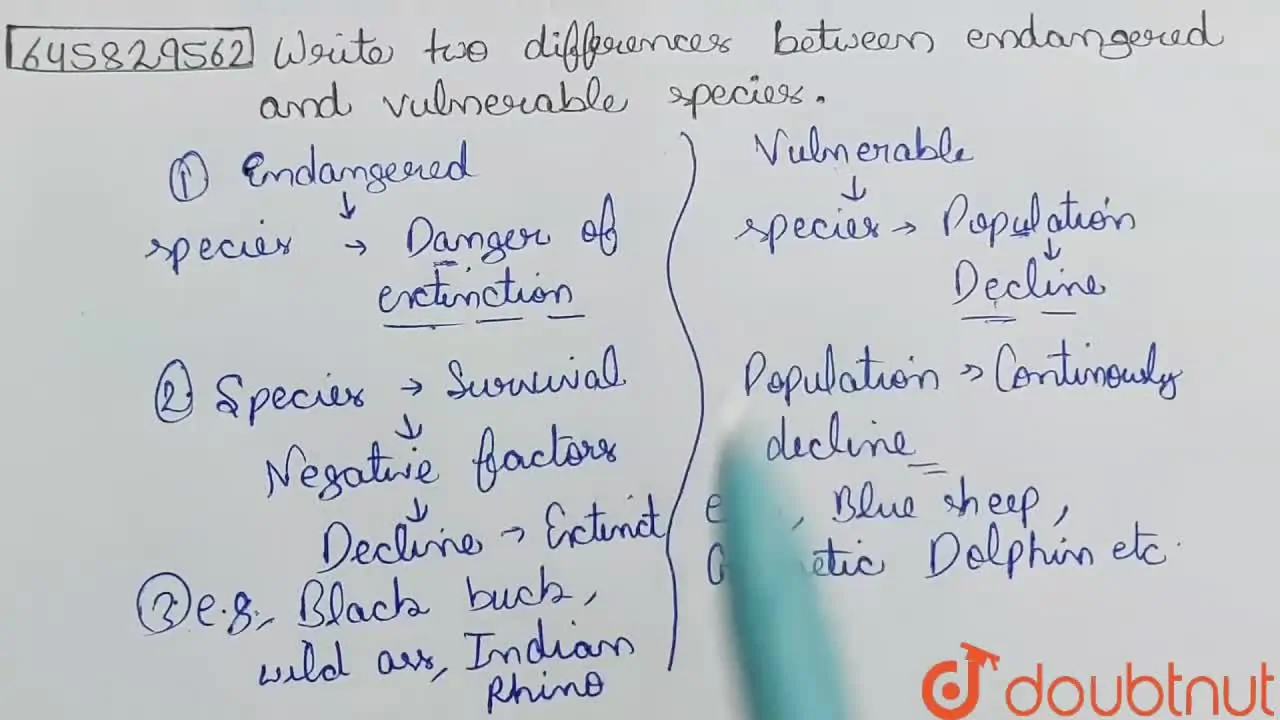 645829562 Write two differences between endangered
and vulnerable species.
① Endangered
↓
species → Danger of
extinction
② Species → Survival
↓
Negative factors
↓
Decline → Extinct
③ e.g., Black buck,
wild ass, Indian
Rhino
Vulnerable
↓
species → Population
↓
Decline
Population → Continously
decline
, Blue sheep,
Dolphin etc.
doubtnut